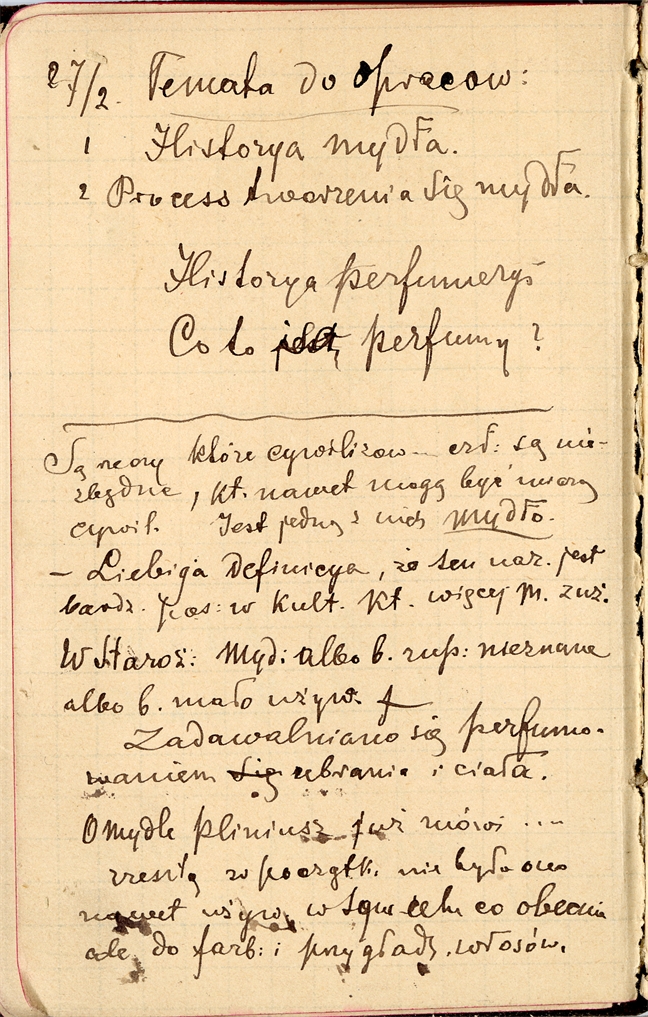 27/2. Temata do opracow:
1 Historya mydła.
2 Process tworzenia się mydła.
Historya perfumeryi
Co to są perfumy?
Są rzeczy które cywilizow erd: są nie-
zbędne, kt. nawet mogą być miarą
cywil. Jest jedną z nich mydło.
– Liebiga Definicya, że ten nar. jest
bardz. pos: w kult. kt. więcej m. zuż.
W Staroż: Myd: albo b. zup: nieznane
albo b. mało używ.
Zadawalniano się perfumo-
waniem się ubrania i ciała.
O mydle Pliniusz już mówi ...
zresztą w początk. nie było ono
nawet używ. w tym celu co obecnie
ale do farb: i przygładz. włosów.